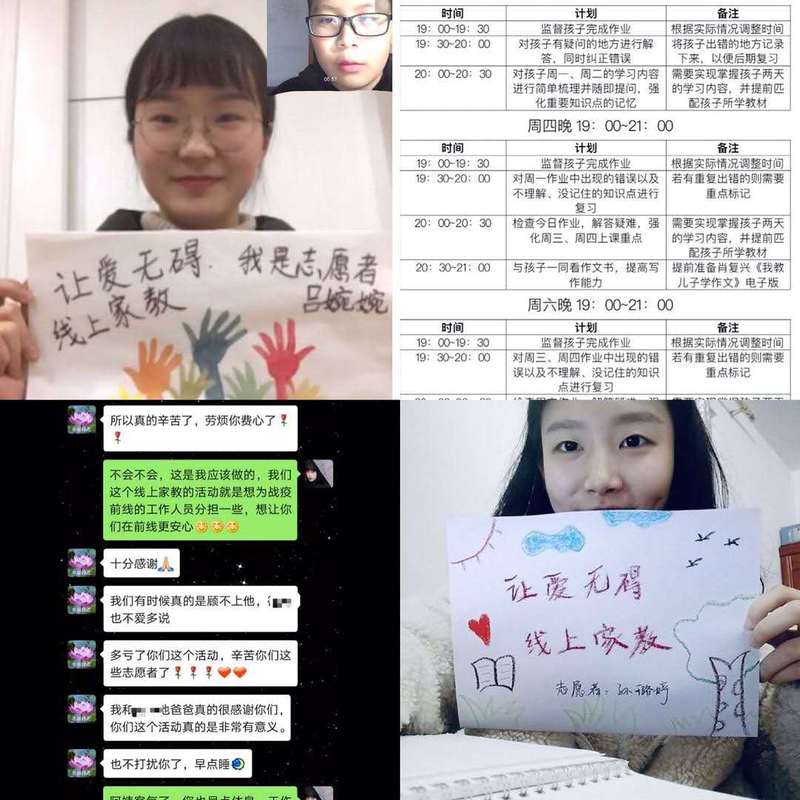 00:57
让爱无碍. 我是志愿者
线上家教 吕婉婉
时间 计划 备注
19：00~19：30 监督孩子完成作业 根据实际情况调整时间
19：30~20：00 对孩子有疑问的地方进行解 将孩子出错的地方记录
答，同时纠正错误 下来，以便后期复习
20：00~20：30 对孩子周一、周二的学习内容 需要实现掌握孩子两天
进行简单梳理并随即提问，强 的学习内容，并提前匹
化重要知识点的记忆 配孩子所学教材
周四晚 19：00~21：00
时间 计划 备注
19：00~19：30 监督孩子完成作业 根据实际情况调整时间
19：30~20：00 对周一作业中出现的错误以及 若有重复出错的则需要
不理解、没记住的知识点进行 重点标记
复习
20：00~20：30 检查今日作业，解答疑难，强 需要实现掌握孩子两天
化周三、周四上课重点 的学习内容，并提前匹
配孩子所学教材
20：30~21：00 与孩子一同看作文书，提高写 提前准备肖复兴《我教
作能力 儿子学作文》电子版
周六晚 19：00~21：00
时间 计划 备注
19：00~19：30 监督孩子完成作业 根据实际情况调整时间
19：30~20：00 对周三、周四作业中出现的错 若有重复出错的则需要
误以及不理解、没记住的知识 重点标记
点进行复习
所以真的辛苦了，劳烦你费心了🌹
🌹
不会不会，这是我应该做的，我们
这个线上家教的活动就是想为战疫
前线的工作人员分担一些，想让你
们在前线更安心😊😊😊
十分感谢🙏
我们有时候真的是顾不上他，
也不爱多说
多亏了你们这个活动，辛苦你们这
些志愿者了🌹🌹🌹❤️❤️
我和 他爸爸真的很感谢你们，
你们这个活动真的是非常有意义。
也不打扰你了，早点睡🌛
让爱无碍
线上家教
志愿者：孙璐婷